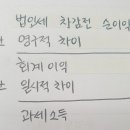 법인세 차감전 순이익
영구적 차이
회계 이익
일시적 차이
과세소득